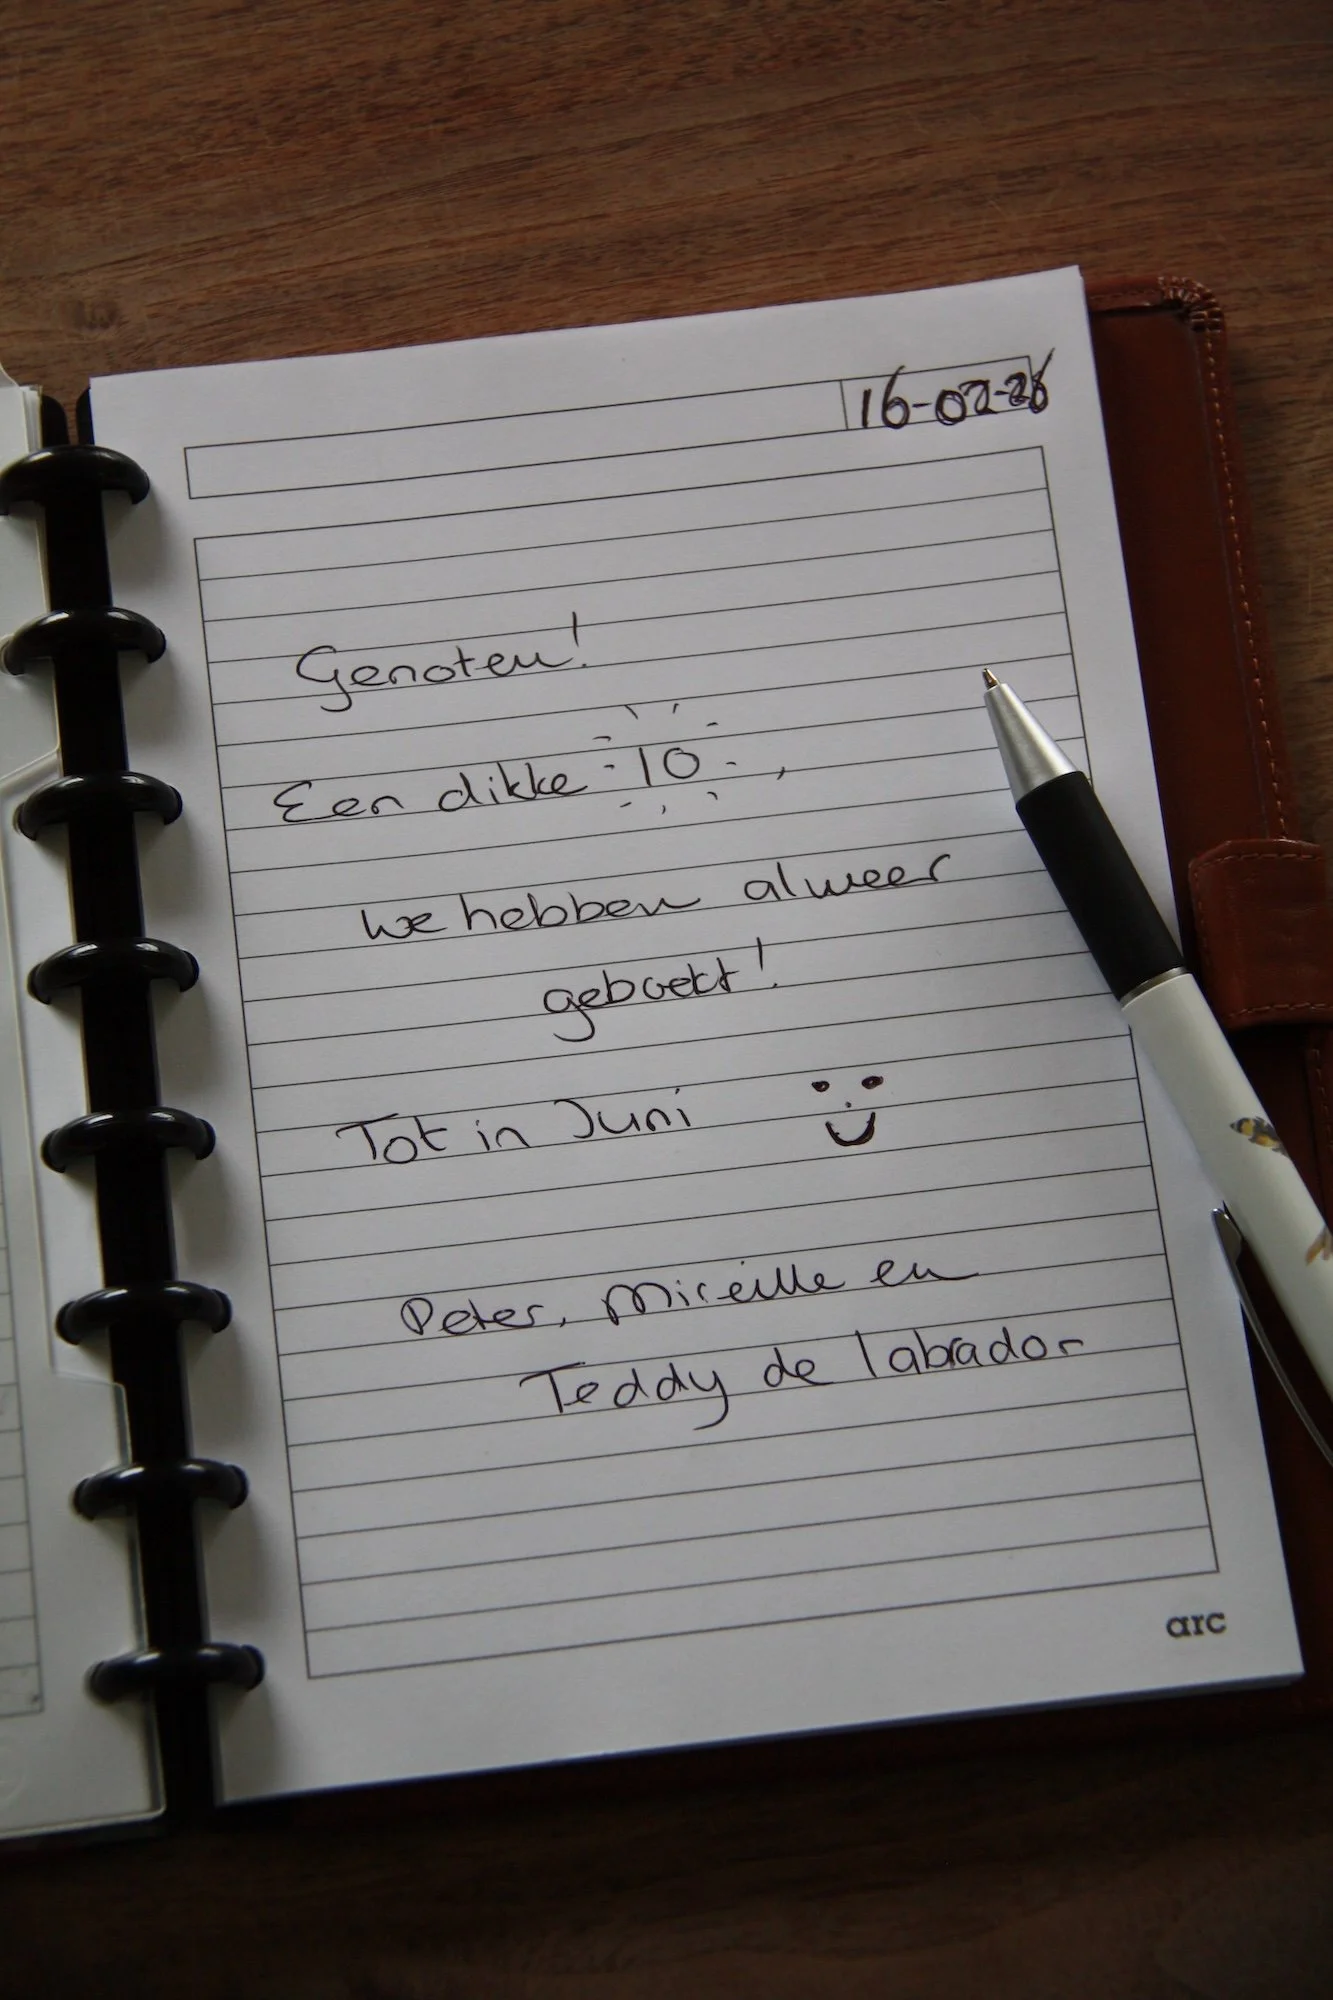 16-02-26
Genoten!
Een dikke 10,
we hebben alweer
geboekt!
Tot in Juni
Peter, Mireille en
Teddy de labrador
arc